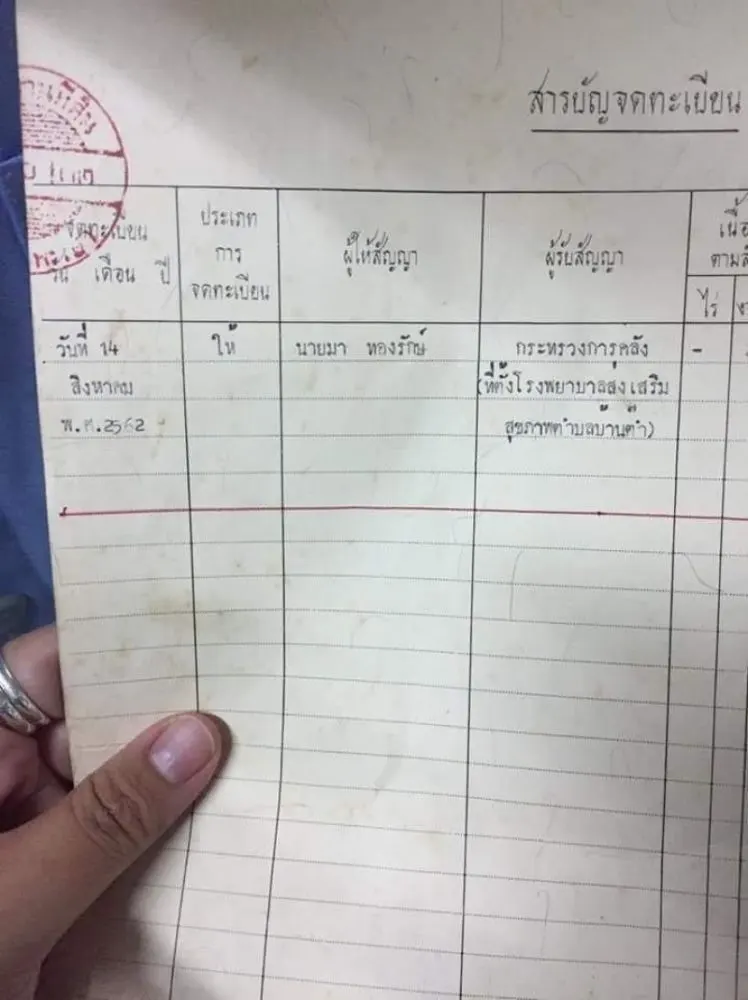 สารบัญจดทะเบียน
จดทะเบียน
วัน เดือน ปี
ประเภท
การ
จดทะเบียน
ผู้ให้สัญญา
ผู้รับสัญญา
เนื้อ
ตาม
ไร่
วันที่ 14 ให้ นายมา ทองรักษ์ กระทรวงการคลัง -
สิงหาคม (ที่ตั้งโรงพยาบาลส่งเสริม
พ.ศ.2562 สุขภาพตำบลบ้านต๊ำ)